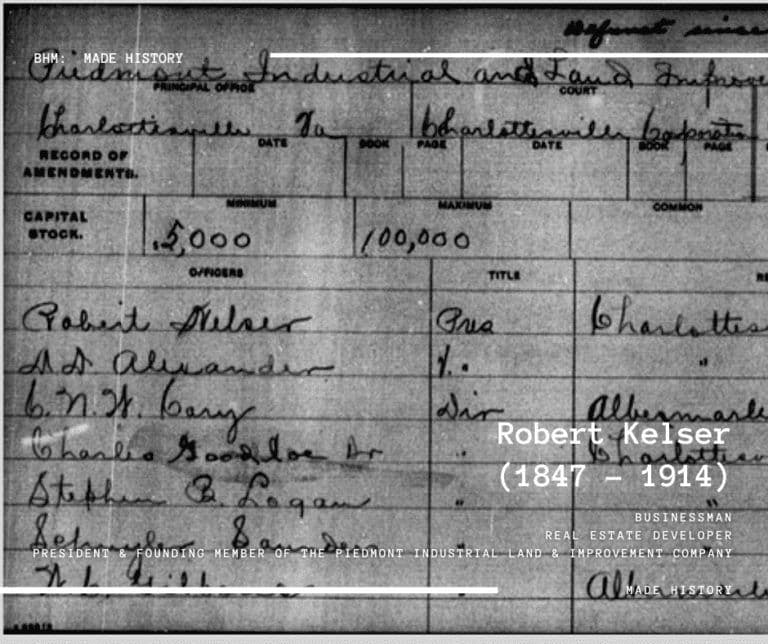 Defunct since
BHM: MADE HISTORY
Piedmont Industrial and Land Improve
PRINCIPAL OFFICE COURT
Charlottesville Va Charlottesville Corporation
RECORD OF AMENDMENTS. DATE BOOK PAGE DATE BOOK PAGE
MINIMUM MAXIMUM COMMON
CAPITAL STOCK. 5,000 100,000
OFFICERS TITLE RE
Robert Kelser Pres Charlottes
Alexander V. "
C. N. W. Cary Dir Albermarle
Robert Kelser
Charles Goodloe Sr " Charlottesv
(1847 – 1914)
Stephen B. Logan " "
BUSINESSMAN
REAL ESTATE DEVELOPER
Schuyler Saunders "
PRESIDENT & FOUNDING MEMBER OF THE PIEDMONT INDUSTRIAL LAND & IMPROVEMENT COMPANY
Albermarle
MADE HISTORY